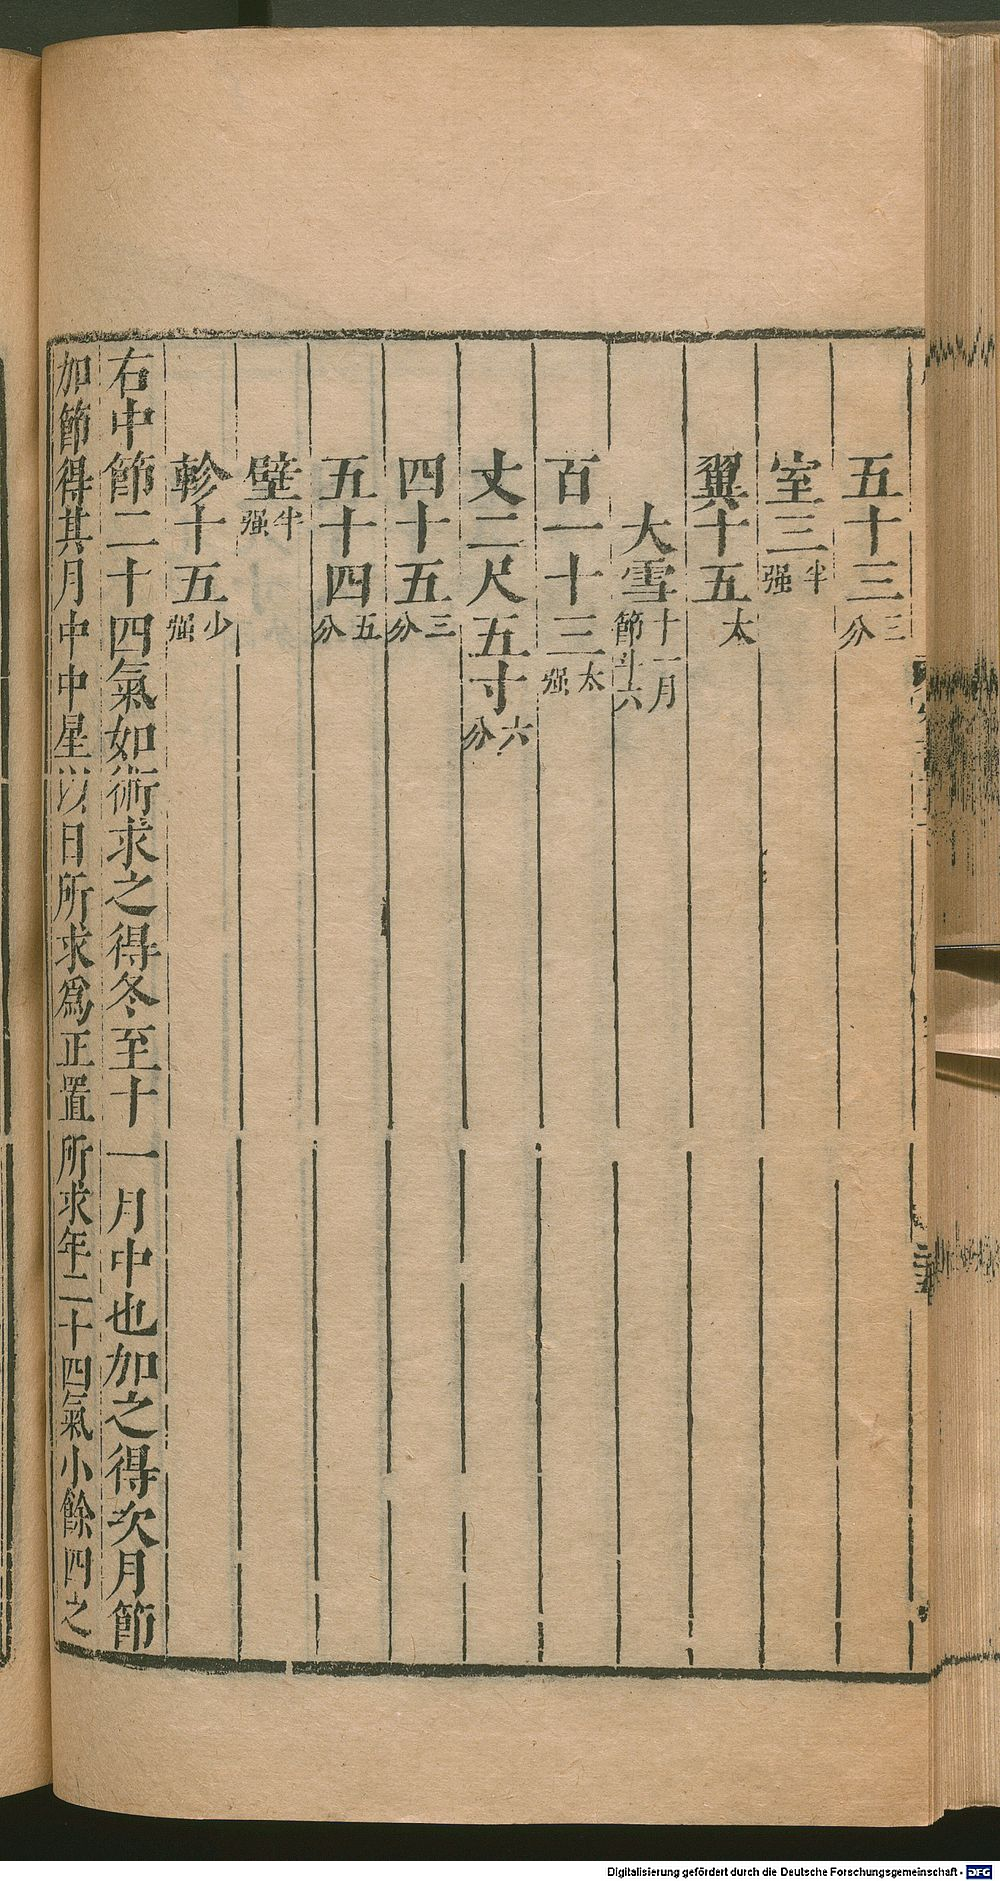 五十三三分
室三半强
翼十五太
大雪十一月節斗六
百一十三太强
丈二尺五寸六分
四十五三分
五十四五分
壁半强
軫十五少强
右中節二十四氣如術求之得冬至十一月中也加之得次月節
加節得其月中中星以日所求爲正置所求年二十四氣小餘四之
Digitalisierung gefördert durch die Deutsche Forschungsgemeinschaft - DFG